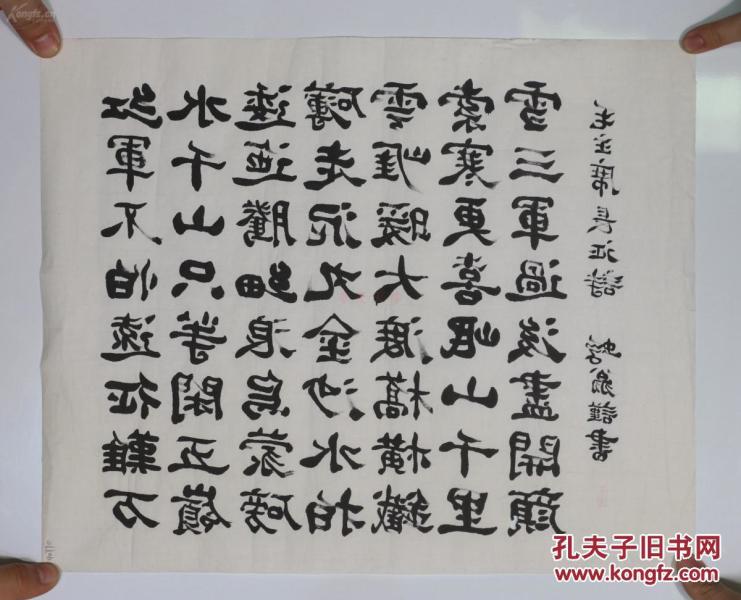 紅軍不怕遠征難万
水千山只等閑五嶺
逶迤騰細浪烏蒙磅
礴走泥丸金沙水拍
雲崖暖大渡橋橫鐵
索寒更喜岷山千里
雪三軍過後盡開顏
毛主席長征詩 翁謹書
Kongfz.cn
孔夫子旧书网
www.kongfz.com